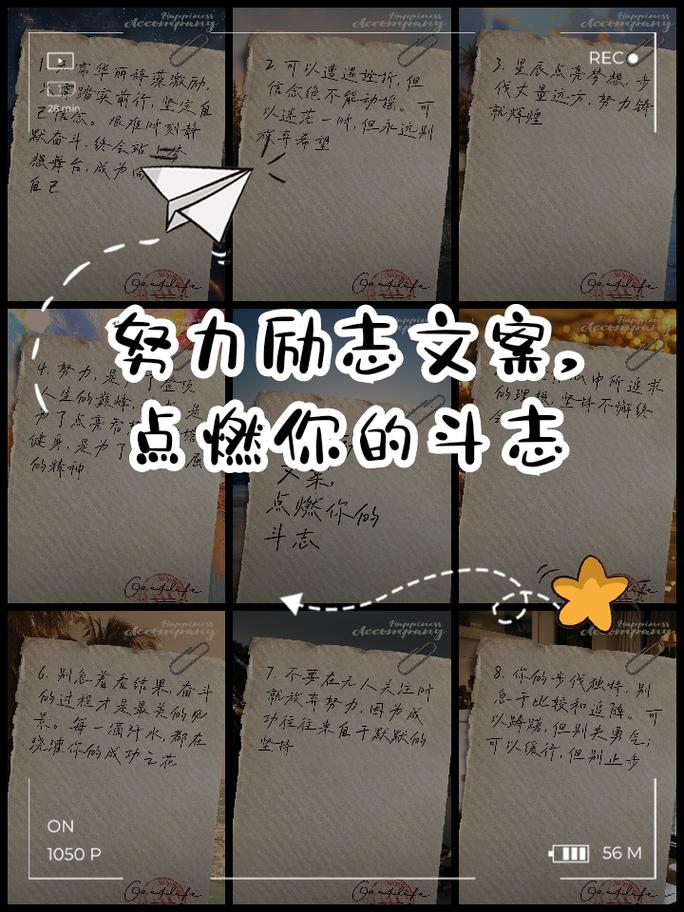 Happiness
Accompany
Happiness
Accompany
Happiness
Accompany
REC
28 min
华丽辞藻激励,
踏实前行,坚定自
己信念。艰难时刻静
默奋斗,终会站
想舞台,成为
自己
Goodlife
2. 可以遭遇挫折,但
信念绝不能动摇。可
以迷茫一时,但永远别
放弃希望
Goodlife
3. 星辰点亮梦想,步
伐丈量远方,努力铸
就辉煌
Goodlife
努力励志文案,
点燃你的斗志
4. 努力,是
人生的巅峰
为了点亮
健身,是为了
的精神
Goodlife
文案,
点燃你的
斗志
中所追求
的理想,坚持不懈终
Happiness
Accompany
Happiness
Accompany
Happiness
Accompany
6. 别急着看结果,奋斗
的过程才是最美的风
景。每一滴汗水,都在
浇灌你的成功之花
Goodlife
7. 不要在无人关注时
就放弃努力,因为成
功往往来自于默默的
坚持
Goodlife
8. 你的步伐独特,别
急于比较和追随。可
以踌躇,但别失勇气;
可以缓行,但别止步
Goodlife
ON
1050 P
56 M